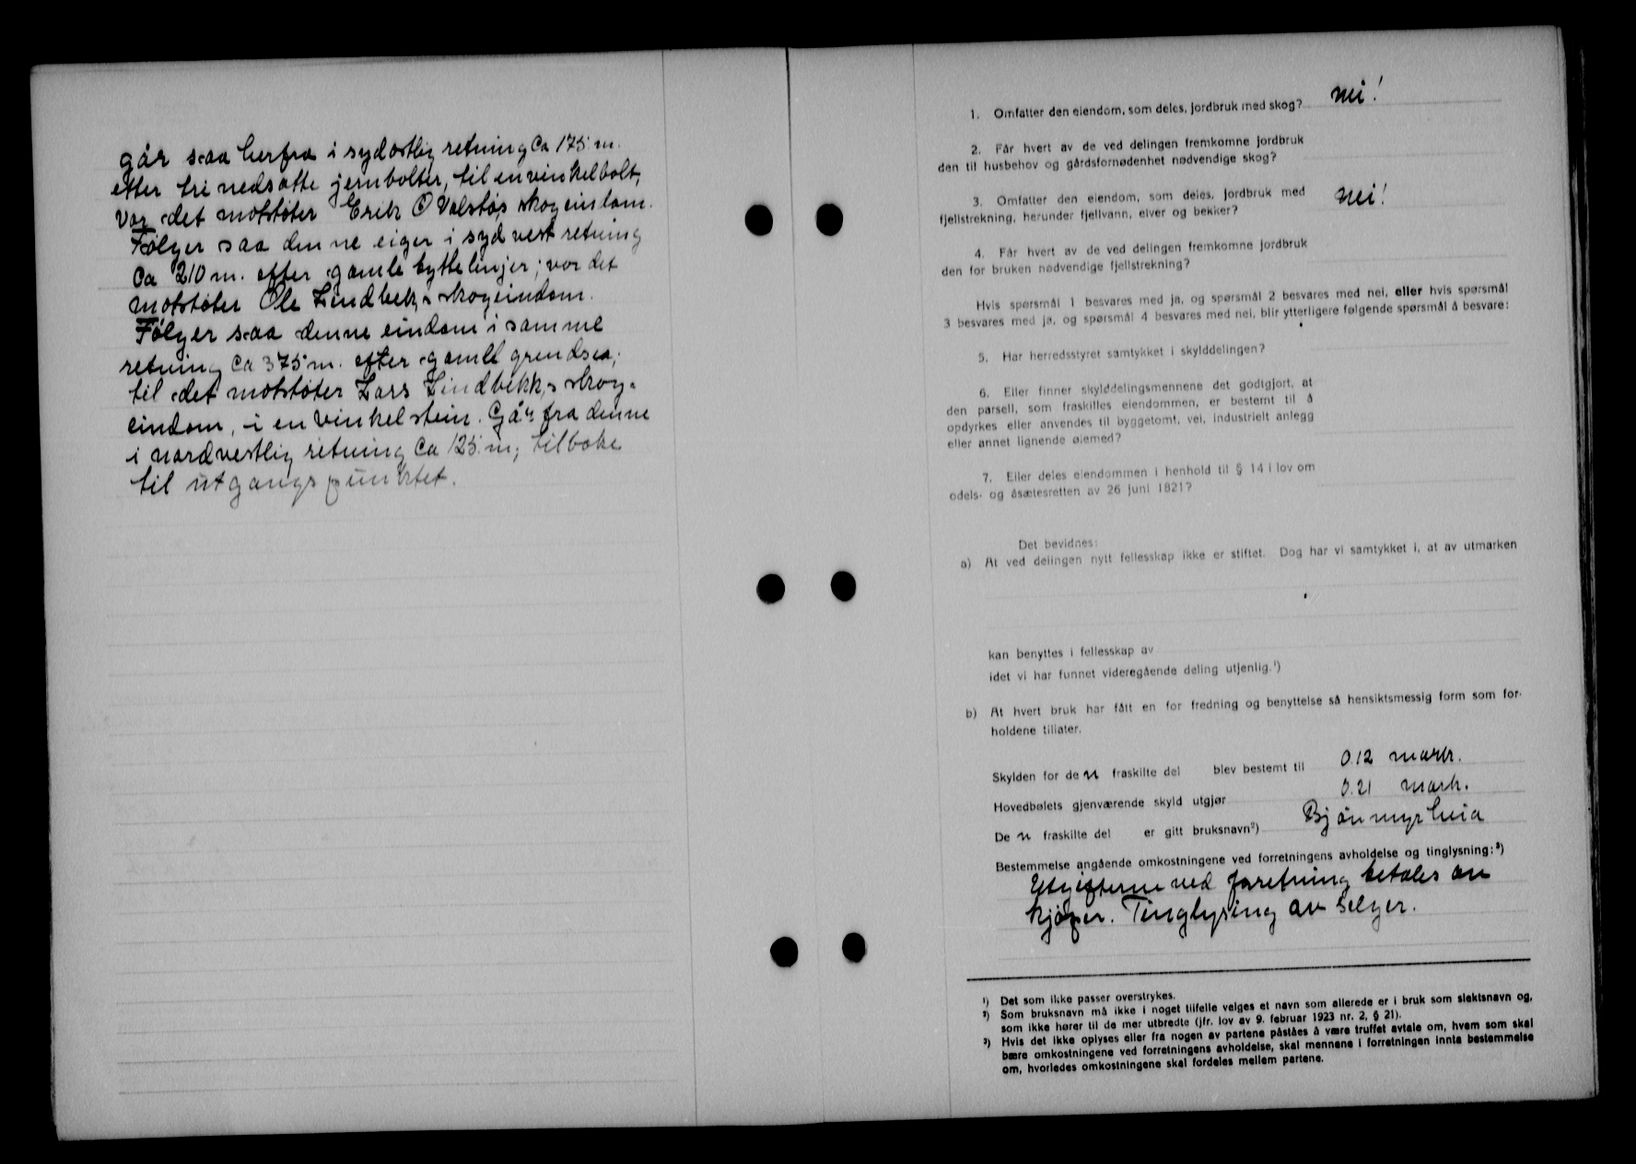 går saa herfra i sydøstlig retning Ca 175 m.
efter tri nedsatte jernbolter, til en vinkelbolt,
Vor det motstøter Erik O Valstøs skogeindom.
Følger saa denne eiger i syd vest retning
Ca 210 m. efter gamle byttelinjer; vor det
motstøter Ole Lindbek,s skogeindom.
Følger saa denne eindom i samme
retning Ca 375 m. efter gamle grendsea,
til det motstøter Lars Lindbekk,s skog-
eindom, i en Vinkelstein. Går fra denne
i nordvestlig retning Ca 125 m, tilbake
til utgangspunktet.
1. Omfatter den eiendom, som deles, jordbruk med skog? nei!
2. Får hvert av de ved delingen fremkomne jordbruk
den til husbehov og gårdsfornødenhet nødvendige skog?
3. Omfatter den eiendom, som deles, jordbruk med
fjellstrekning, herunder fjellvann, elver og bekker? nei!
4. Får hvert av de ved delingen fremkomne jordbruk
den for bruken nødvendige fjellstrekning?
Hvis spørsmål 1 besvares med ja, og spørsmål 2 besvares med nei, eller hvis spørsmål
3 besvares med ja, og spørsmål 4 besvares med nei, blir ytterligere følgende spørsmål å besvare:
5. Har herredsstyret samtykket i skylddelingen?
6. Eller finner skylddelingsmennene det godtgjort, at
den parsell, som fraskilles eiendommen, er bestemt til å
opdyrkes eller anvendes til byggetomt, vei, industrielt anlegg
eller annet lignende øiemed?
7. Eller deles eiendommen i henhold til § 14 i lov om
odels- og åsætesretten av 26 juni 1821?
Det bevidnes:
a) At ved delingen nytt fellesskap ikke er stiftet. Dog har vi samtykket i, at av utmarken
kan benyttes i fellesskap av
idet vi har funnet videregående deling utjenlig.¹)
b) At hvert bruk har fått en for fredning og benyttelse så hensiktsmessig form som for-
holdene tillater.
Skylden for de n fraskilte del blev bestemt til 0.12 mark.
Hovedbølets gjenværende skyld utgjør 0.21 mark.
De n fraskilte del er gitt bruksnavn²) Bjønmyrheia
Bestemmelse angående omkostningene ved forretningens avholdelse og tinglysning:³)
Utgifterne ved foretning betales av
kjøper. Tinglysing av selger.
¹) Det som ikke passer overstrykes.
²) Som bruksnavn må ikke i noget tilfelle velges et navn som allerede er i bruk som slektsnavn og,
som ikke hører til de mer utbredte (jfr. lov av 9. februar 1923 nr. 2, § 21).
³) Hvis det ikke oplyses eller fra nogen av partene påståes å være truffet avtale om, hvem som skal
bære omkostningene ved forretningens avholdelse, skal mennene i forretningen innta bestemmelse
om, hvorledes omkostningene skal fordeles mellem partene.